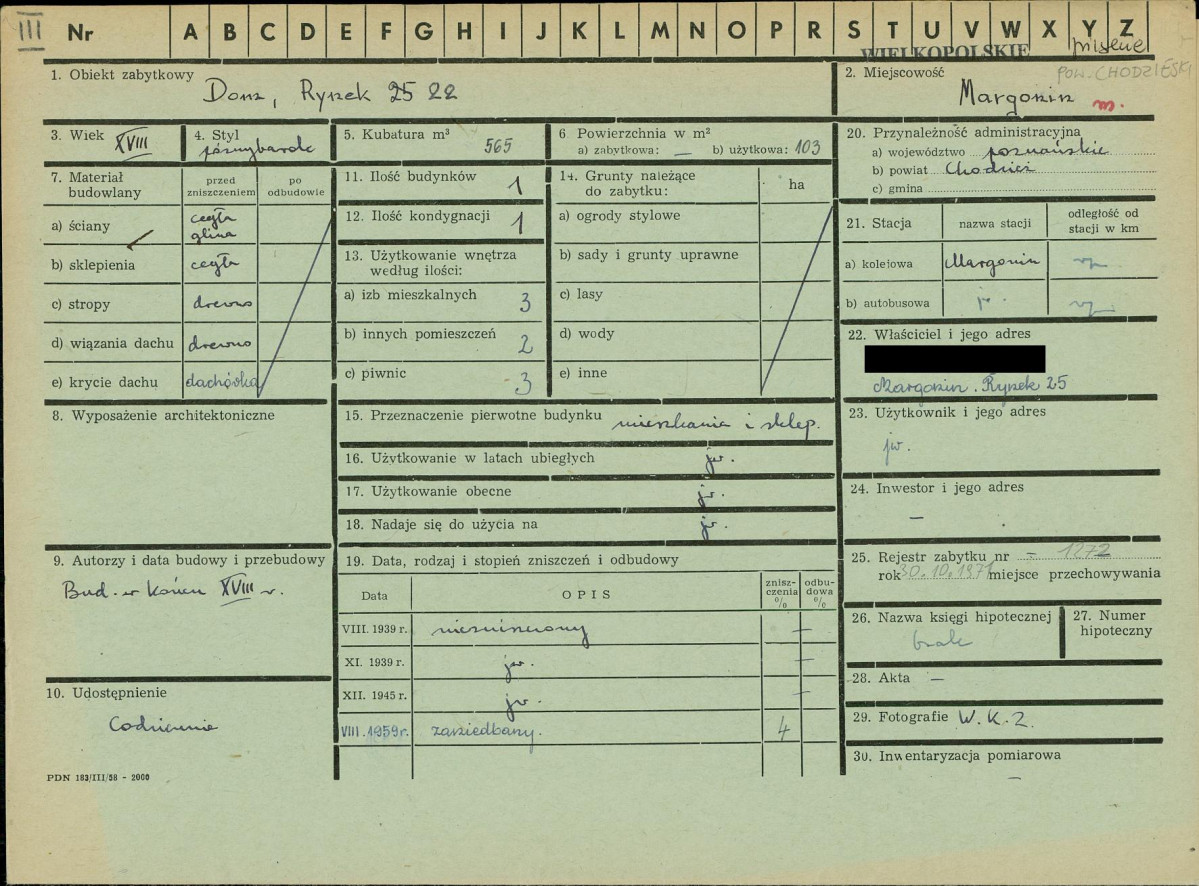 III Nr A B C D E F G H I J K L M N O P R S T U V W X Y Z
WIELKOPOLSKIE
POW. CHODZIESKI
1. Obiekt zabytkowy Dom, Rynek 25 22
2. Miejscowość Margonin m.
3. Wiek XVIII
4. Styl późnybarok
5. Kubatura m³ 565
6 Powierzchnia w m²
a) zabytkowa: — b) użytkowa: 103
7. Materiał budowlany
przed zniszczeniem
po odbudowie
a) ściany cegła glina
b) sklepienia cegła
c) stropy drewno
d) wiązania dachu drewno
e) krycie dachu dachówka
8. Wyposażenie architektoniczne
9. Autorzy i data budowy i przebudowy
Bud. w końcu XVIII w.
10. Udostępnienie
Codziennie
PDN 183/III/58 - 2000
11. Ilość budynków 1
12. Ilość kondygnacji 1
13. Użytkowanie wnętrza według ilości:
a) izb mieszkalnych 3
b) innych pomieszczeń 2
c) piwnic 3
14. Grunty należące do zabytku:
ha
a) ogrody stylowe
b) sady i grunty uprawne
c) lasy
d) wody
e) inne
15. Przeznaczenie pierwotne budynku mieszkania i sklep.
16. Użytkowanie w latach ubiegłych jw.
17. Użytkowanie obecne jw.
18. Nadaje się do użycia na jw.
19. Data, rodzaj i stopień zniszczeń i odbudowy
Data
OPIS
znisz-czenia %
odbu-dowa %
VIII. 1939 r. niezniszczony —
XI. 1939 r. jw. —
XII. 1945 r. jw. —
VIII. 1959 r. zaniedbany. 4
20. Przynależność administracyjna
a) województwo poznańskie
b) powiat Chodzież
c) gmina
21. Stacja
nazwa stacji
odległość od stacji w km
a) kolejowa Margonin
b) autobusowa jw.
22. Właściciel i jego adres
Margonin. Rynek 25
23. Użytkownik i jego adres
jw.
24. Inwestor i jego adres
—
25. Rejestr zabytku nr — 1272
rok 30.10.1971 miejsce przechowywania
26. Nazwa księgi hipotecznej
brak
27. Numer hipoteczny
28. Akta —
29. Fotografie W.K.Z.
30. Inwentaryzacja pomiarowa
—